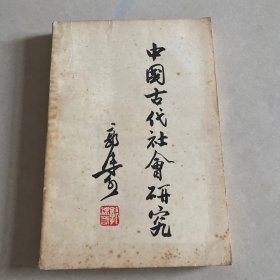 中國古代社會研究
郭沫若